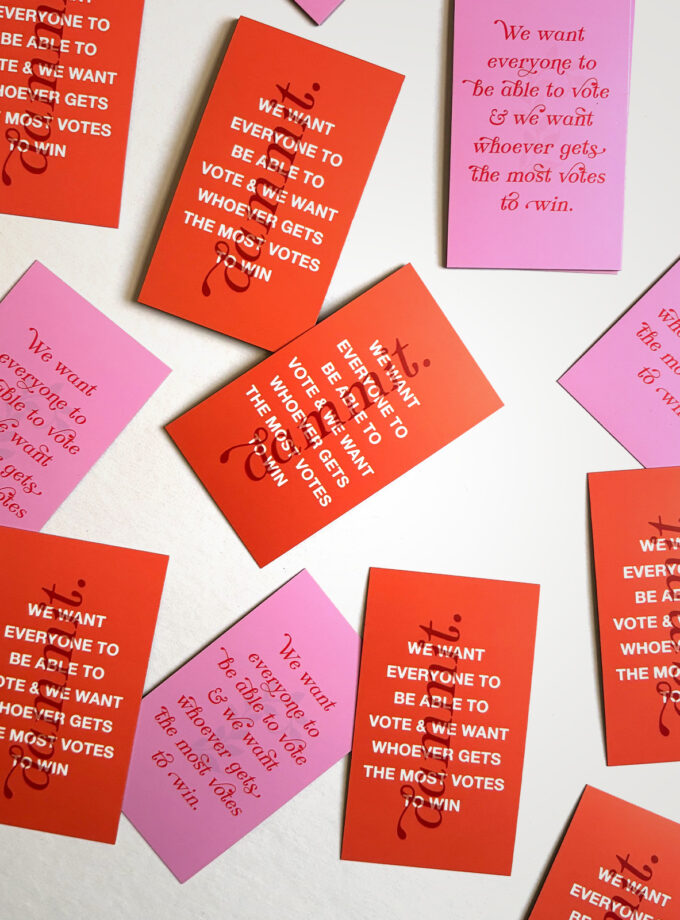 EVERYONE TO
BE ABLE TO
& WE WANT
GETS
MOST VOTES
TO WIN
dammit.
WE WANT
EVERYONE TO
BE ABLE TO
VOTE & WE WANT
WHOEVER GETS
THE MOST VOTES
TO WIN
dammit.
We want
everyone to
be able to vote
& we want
whoever gets
the most votes
to win.
We want
everyone to
able to vote
we want
gets
votes
WE WANT
EVERYONE TO
BE ABLE TO
VOTE & WE WANT
WHOEVER GETS
THE MOST VOTES
TO WIN
dammit.
the mo
to wi
WE WANT
EVERYONE TO
BE ABLE TO
OTE & WE WANT
WHOEVER GETS
MOST VOTES
TO WIN
dammit.
We want
everyone to
be able to vote
& we want
whoever gets
the most votes
to win.
WE WANT
EVERYONE TO
BE ABLE TO
VOTE & WE WANT
WHOEVER GETS
THE MOST VOTES
TO WIN
dammit.
WE
EVERY
BE AB
VOTE & W
WHOEVE
THE MOST
TO
WE WANT
EVERYONE
BE